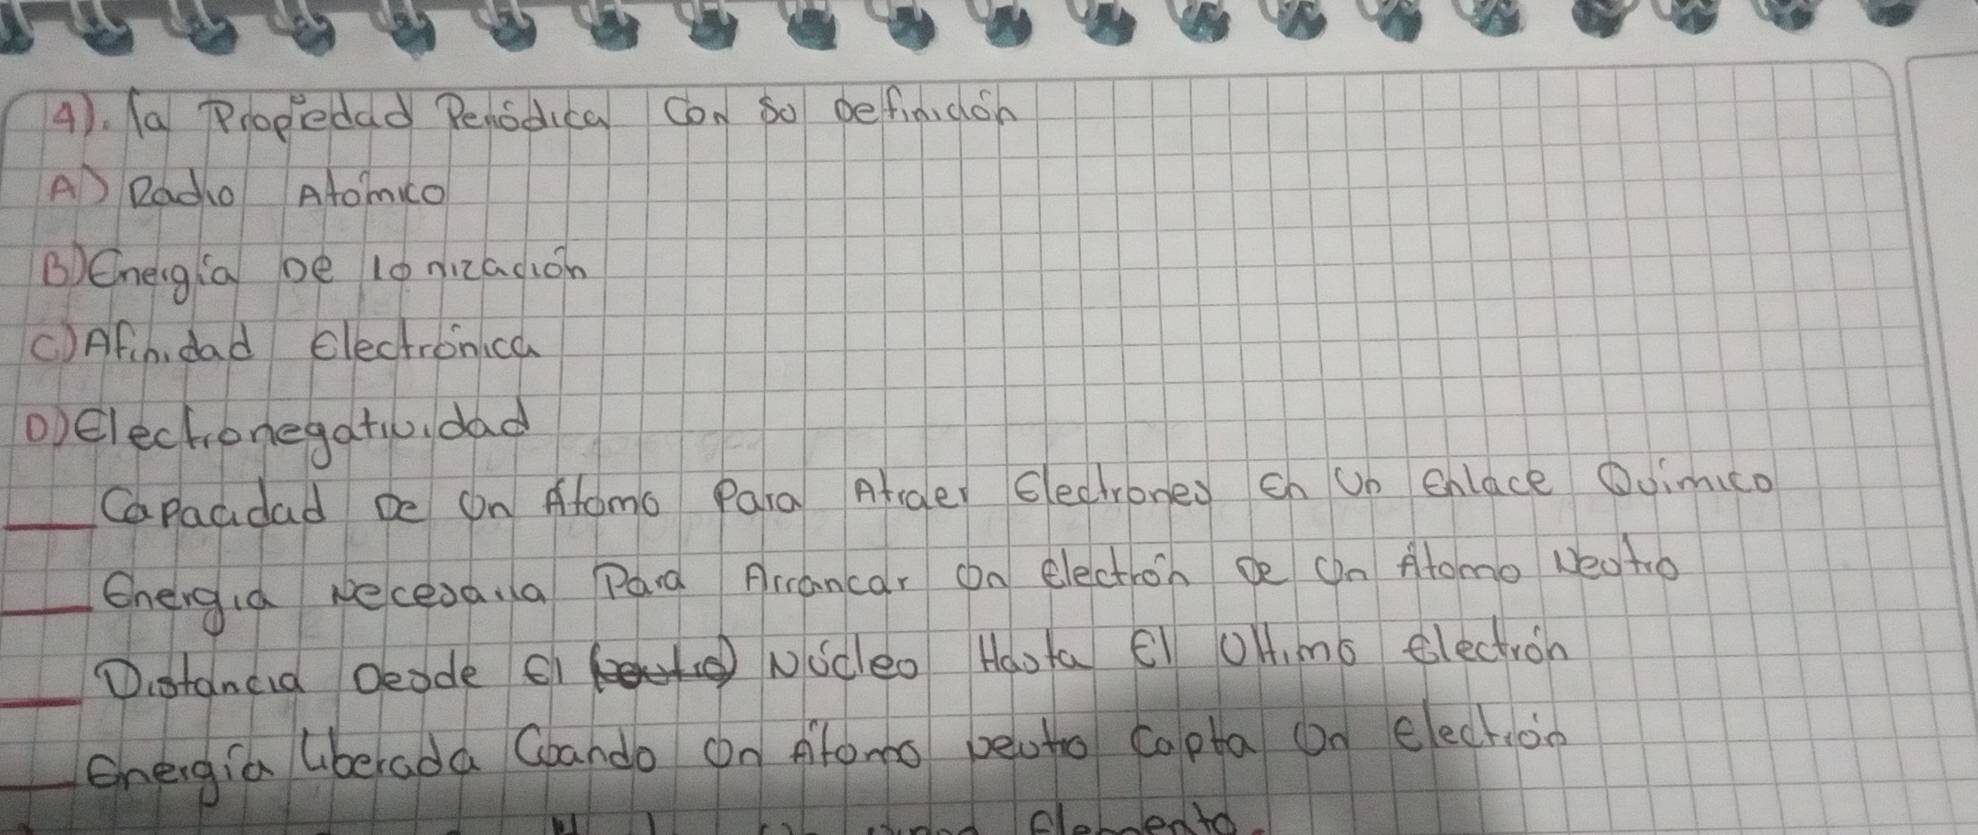 4). la Propiedad Periódica con so Definición
A) Radio Atómico
B) Energía De Ionización
C) Afinidad Electrónica
D) Electronegatividad
___ Capacidad De on Átomo Para Atraer Electrones En Un Enlace Químico
___ Energia Necesaria Para Arrancar on Electrón De on Átomo Neotro
___ Distancia Desde El Núcleo Hasta El Oltimo Electrón
___ Energía Liberada Coando on Átomo neutro Capta on electrón
Elemento.